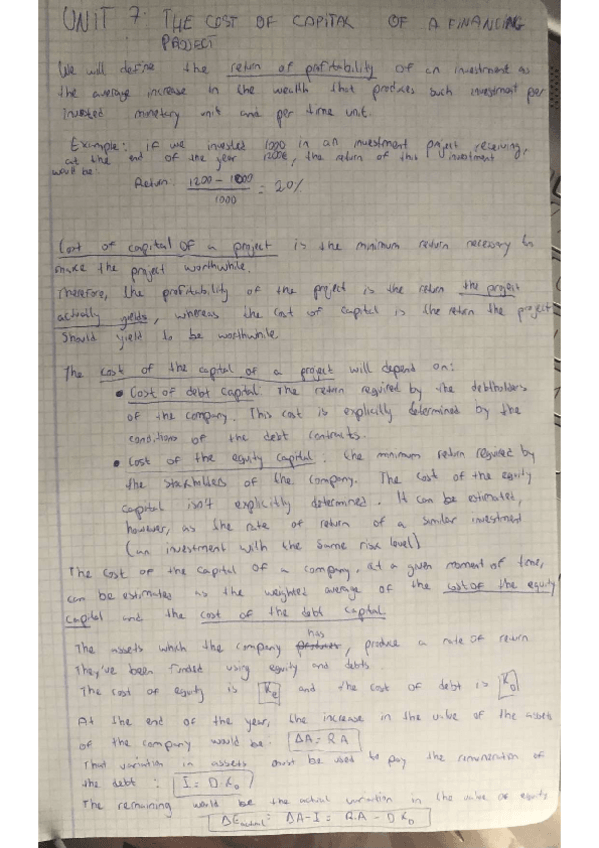 UNIT 7: THE COST OF CAPITAL OF A FINANCING
PROJECT
We will define the return of profitability of an investment as
the average increase in the wealth that produces such investment per
invested monetary unit and per time unit.
Example: if we invested 1000 in an investment project receiving,
at the end of the year 1200€, the return of this investment
would be:
Return 1200 - 1000 / 1000 = 20%
Cost of capital of a project is the minimum return necessary to
make the project worthwhile.
Therefore, the profitability of the project is the return the project
actually yields, whereas the cost of capital is the return the project
should yield to be worthwhile.
The cost of the capital of a project will depend on:
• Cost of debt capital. The return required by the debtholders
of the company. This cost is explicitly determined by the
conditions of the debt contracts.
• Cost of the equity capital: the minimum return required by
the stakholders of the company. The cost of the equity
capital isn't explicitly determined. It can be estimated,
however, as the rate of return of a similar investment
(an investment with the same risk level)
The cost of the capital of a company, at a given moment of time,
can be estimated as the weighted average of the cost of the equity
capital and the cost of the debt capital.
has
The assets which the company produce a rate of return
They've been funded using equity and debts.
The cost of equity is Ke and the cost of debt is KD
At the end of the year, the increase in the value of the assets
of the company would be: ΔA = R.A
That variation in assets must be used to pay the remuneration of
the debt: I = D.KD
The remaining would be the actual variation in the value of equity
ΔEactual = ΔA - I = R.A - D.KD